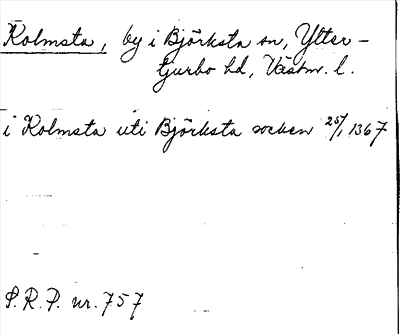 Kolmsta, by i Björksta sn, Ytter-
tjurbo hd, Västm. l.
i Kolmsta uti Björksta socken 25/1 1367
S.R.P. nr. 757